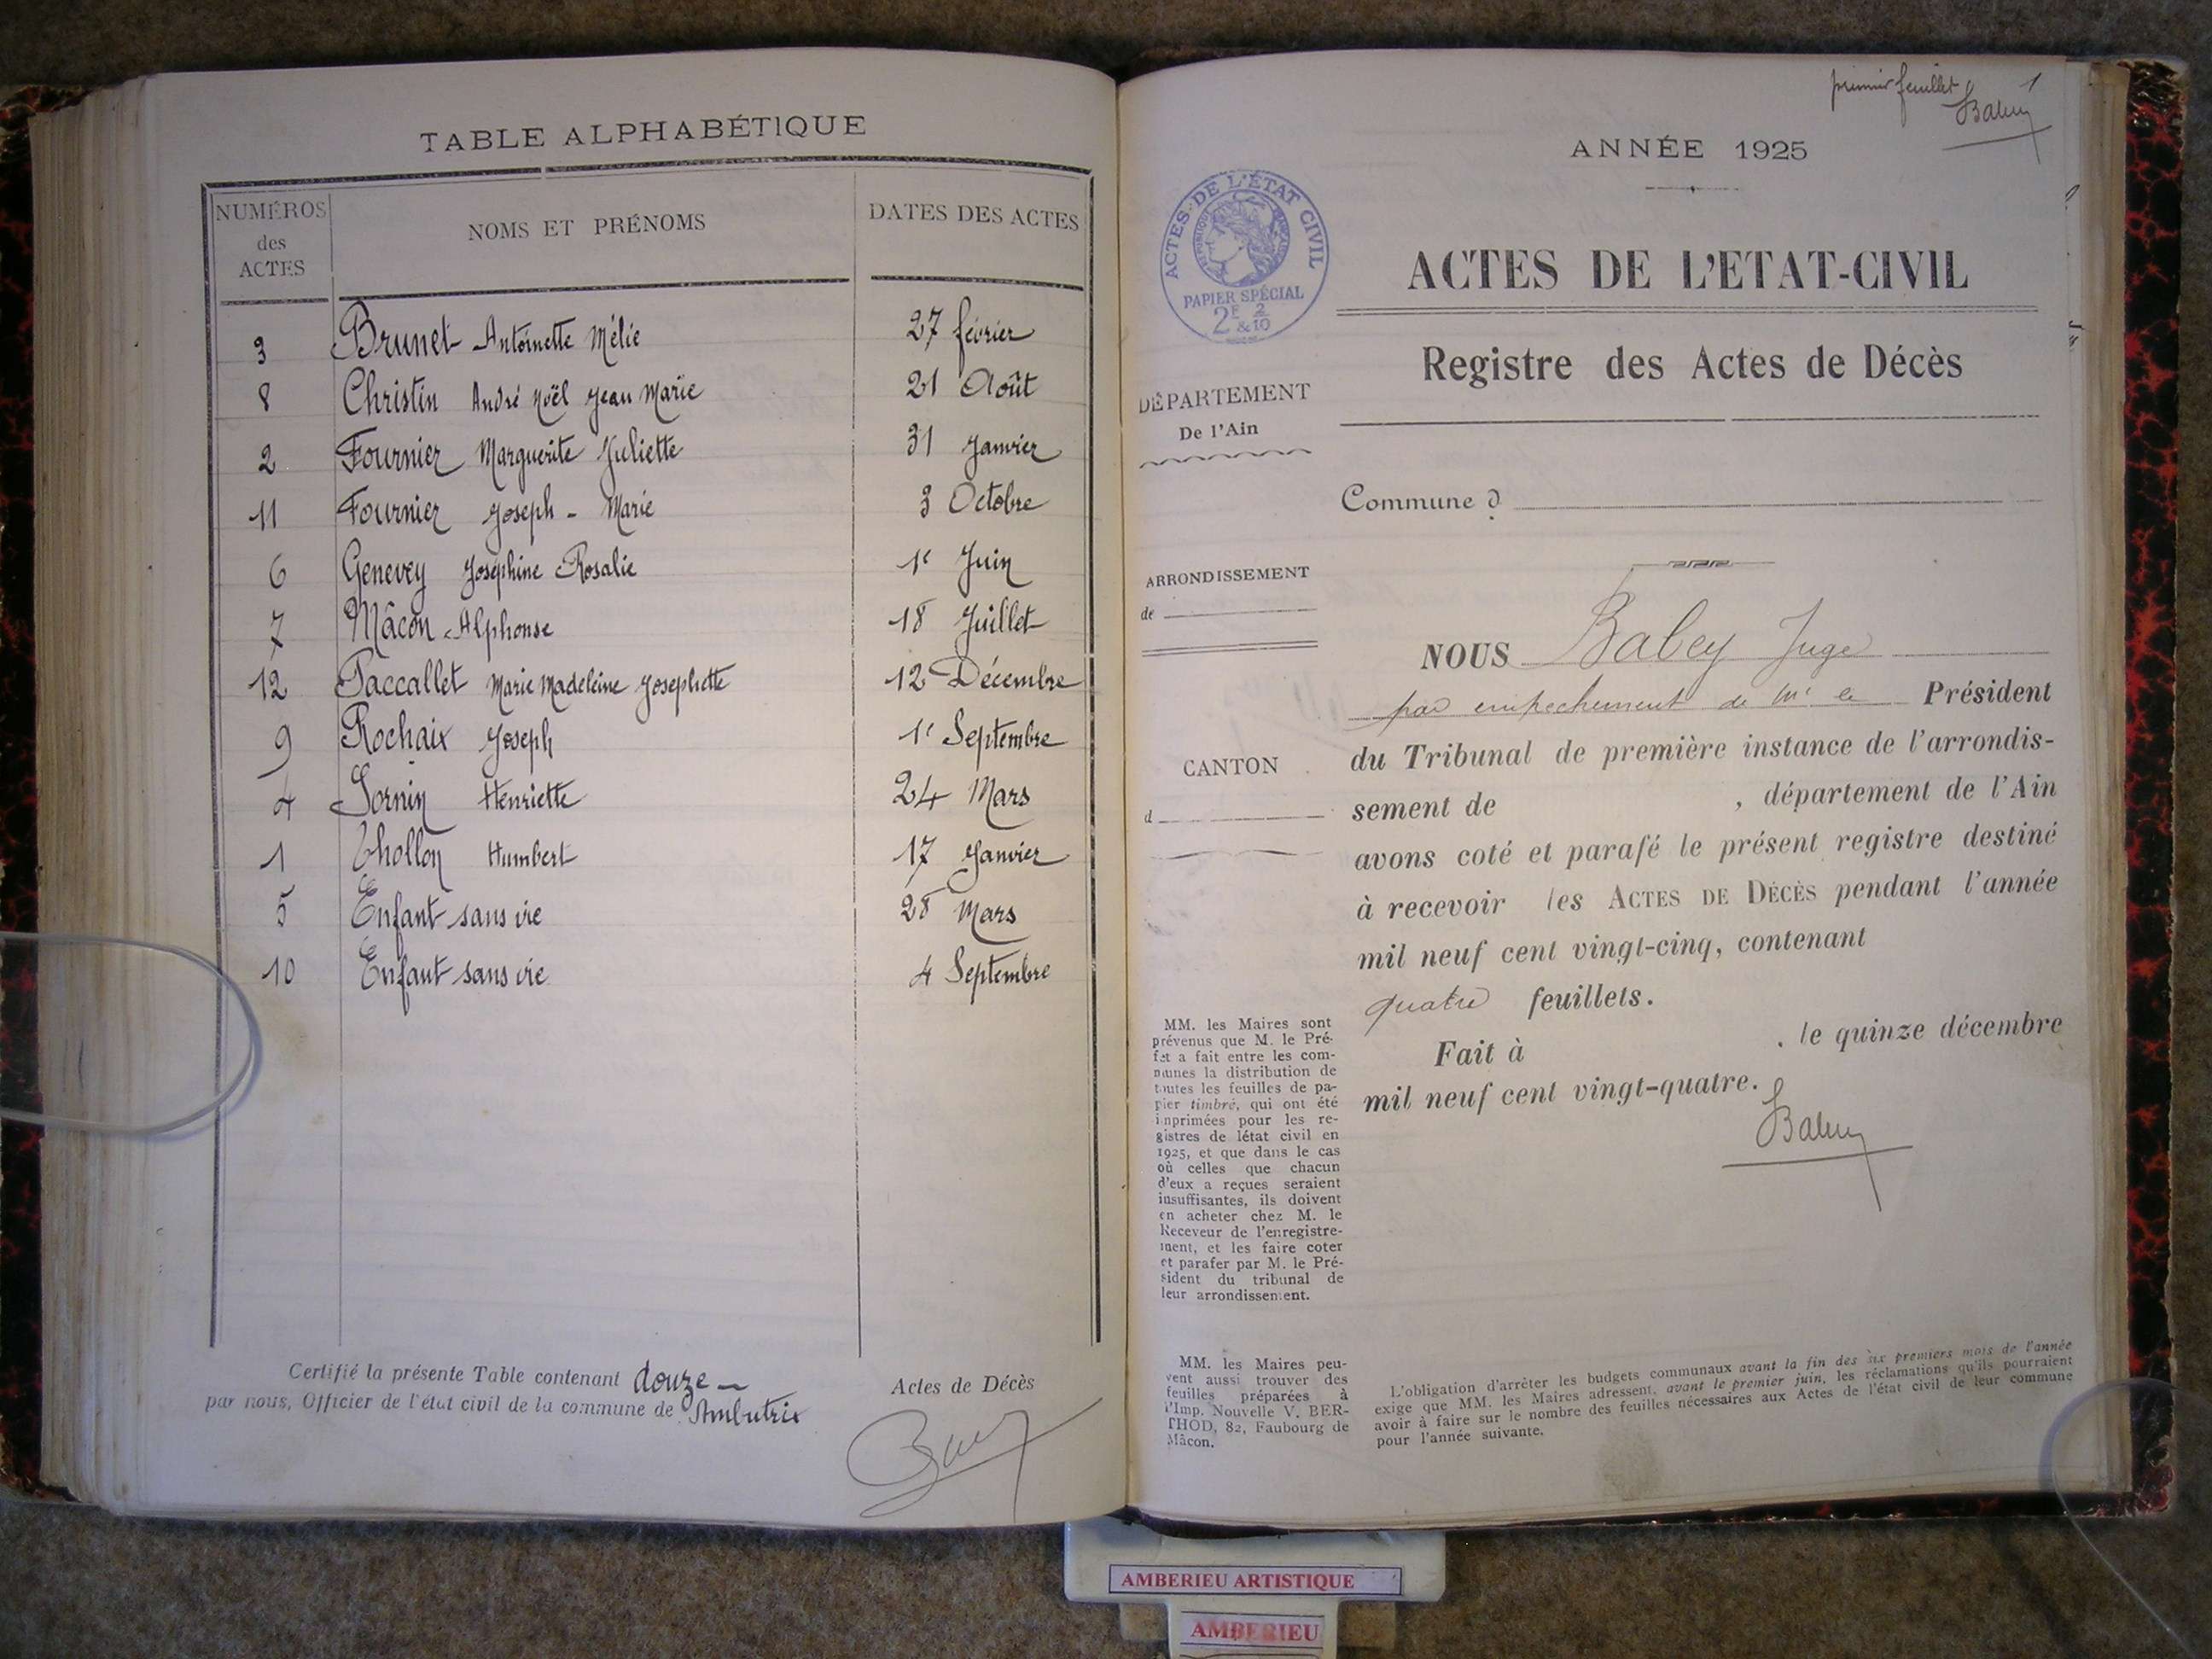 TABLE ALPHABÉTIQUE
NUMÉROS des ACTES NOMS ET PRÉNOMS DATES DES ACTES
3 Brunet Antoinette Mélie 27 février
8 Christin André Noël Jean Marie 21 Août
2 Fournier Marguerite Juliette 31 Janvier
11 Fournier Joseph - Marie 3 Octobre
6 Genevey Joséphine Rosalie 1r Juin
7 Mâcon Alphonse 18 Juillet
12 Paccallet Marie Madeleine Josephette 12 Décembre
9 Rochaix Joseph 1r Septembre
4 Sornin Henriette 24 Mars
1 Thollon Humbert 17 Janvier
5 Enfant sans vie 28 Mars
10 Enfant sans vie 4 Septembre
Certifié la présente Table contenant douze Actes de Décès
par nous, Officier de l'état civil de la commune de Ambutrix
premier feuillet 1
Babey
ANNÉE 1925
ACTES DE L'ÉTAT CIVIL
RÉPUBLIQUE FRANÇAISE
PAPIER SPÉCIAL
2F 2
&10
ACTES DE L'ETAT-CIVIL
Registre des Actes de Décès
DÉPARTEMENT
De l'Ain
Commune d
ARRONDISSEMENT
de
CANTON
d
NOUS Babey Juge
par empechement de Mr le Président
du Tribunal de première instance de l'arrondis-
sement de , département de l'Ain
avons coté et parafé le présent registre destiné
à recevoir les ACTES DE DÉCÈS pendant l'année
mil neuf cent vingt-cinq, contenant
quatre feuillets.
Fait à , le quinze décembre
mil neuf cent vingt-quatre.
Babey
MM. les Maires sont
prévenus que M. le Pré-
fet a fait entre les com-
munes la distribution de
toutes les feuilles de pa-
pier timbré, qui ont été
imprimées pour les re-
gistres de létat civil en
1925, et que dans le cas
où celles que chacun
d'eux a reçues seraient
insuffisantes, ils doivent
en acheter chez M. le
Receveur de l'enregistre-
ment, et les faire coter
et parafer par M. le Pré-
sident du tribunal de
leur arrondissement.
MM. les Maires peu-
vent aussi trouver des
feuilles préparées à
l'Imp. Nouvelle V. BER-
THOD, 82, Faubourg de
Mâcon.
L'obligation d'arrêter les budgets communaux avant la fin des six premiers mois de l'année
exige que MM. les Maires adressent, avant le premier juin, les réclamations qu'ils pourraient
avoir à faire sur le nombre des feuilles nécessaires aux Actes de l'état civil de leur commune
pour l'année suivante.
AMBERIEU ARTISTIQUE
AMBERIEU